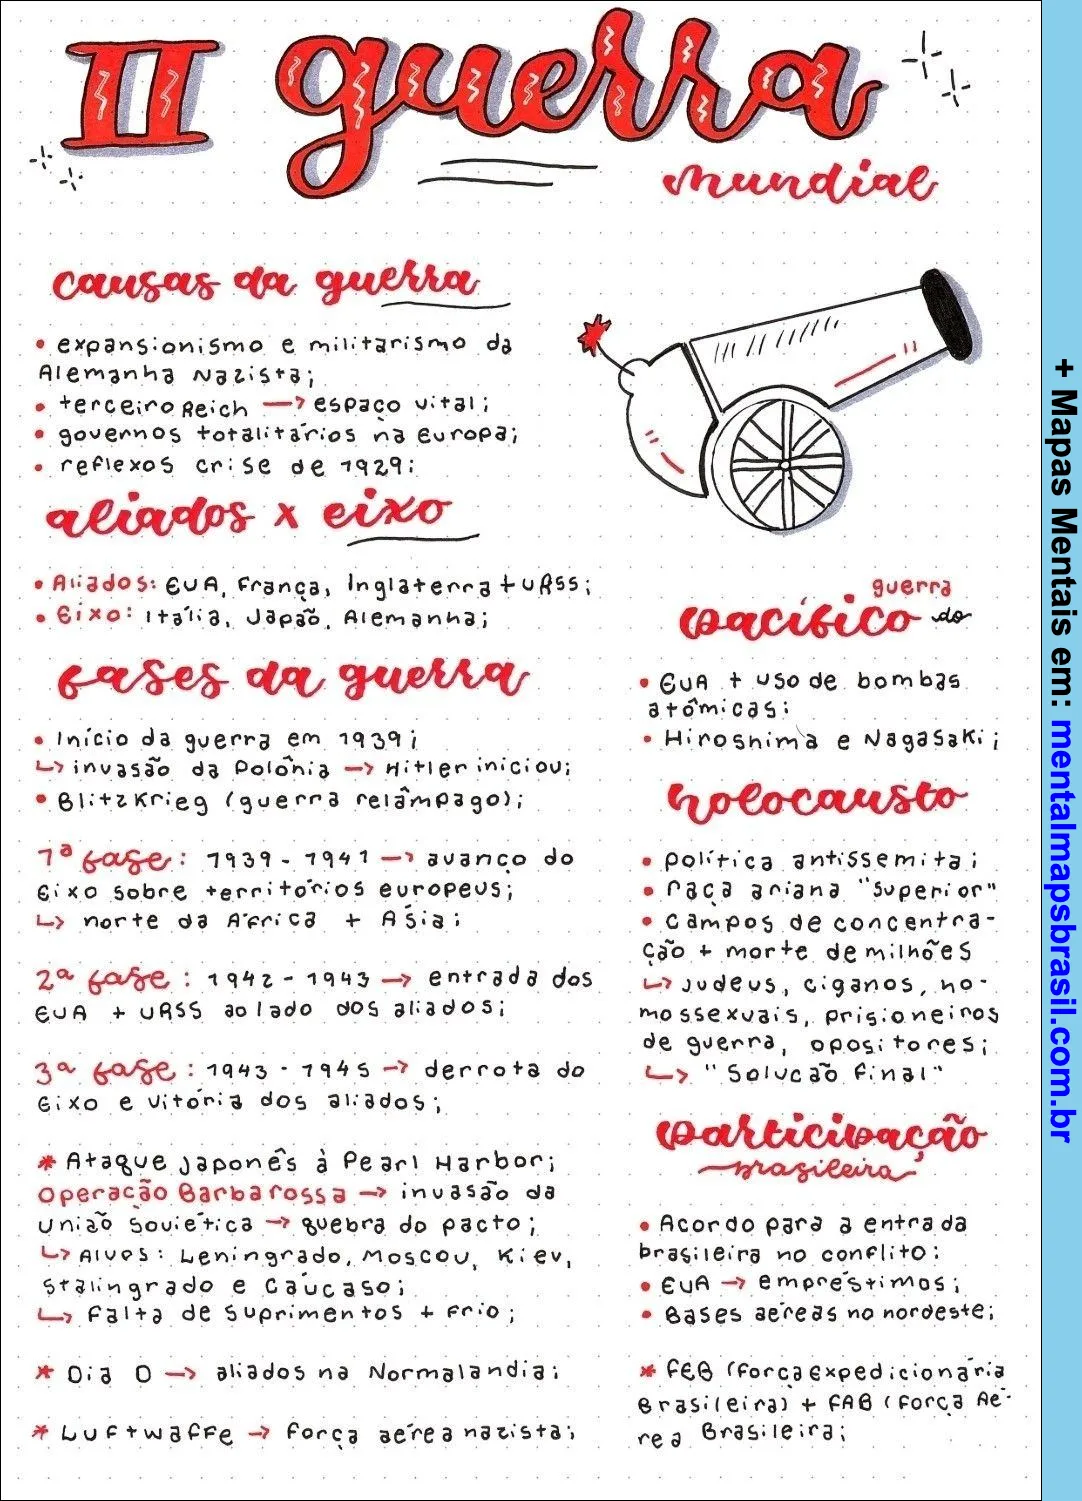 II guerra
mundial
causas da guerra
• expansionismo e militarismo da
Alemanha Nazista;
• terceiro Reich → espaço vital;
• governos totalitários na Europa;
• reflexos crise de 1929;
aliados x eixo
• Aliados: EUA, França, Inglaterra + URSS;
• Eixo: Itália, Japão, Alemanha;
fases da guerra
• Início da guerra em 1939;
↳ invasão da Polônia → Hitler iniciou;
• Blitzkrieg (guerra relâmpago);
1ª fase: 1939 - 1941 → avanço do
Eixo sobre territórios europeus;
↳ norte da África + Ásia;
2ª fase: 1942 - 1943 → entrada dos
EUA + URSS ao lado dos aliados;
3ª fase: 1943 - 1945 → derrota do
Eixo e vitória dos aliados;
* Ataque japonês à Pearl Harbor;
Operação Barbarossa → invasão da
União Soviética → quebra do pacto;
↳ Alvos: Leningrado, Moscou, Kiev,
Stalingrado e Cáucaso;
↳ Falta de suprimentos + frio;
* Dia D → aliados na Normalandia;
* Luftwaffe → força aérea nazista;
guerra
pacífico do
• EUA + uso de bombas
atômicas;
• Hiroshima e Nagasaki;
holocausto
• política antissemita;
• raça ariana "superior"
• campos de concentra-
ção + morte de milhões
↳ judeus, ciganos, ho-
mossexuais, prisioneiros
de guerra, opositores;
↳ "Solucão final"
participação
brasileira
• Acordo para a entrada
brasileira no conflito:
• EUA → empréstimos;
• Bases aéreas no nordeste;
* FEB (Força Expedicionária
Brasileira) + FAB (Força Aé-
rea Brasileira;
+ Mapas Mentais em: mentalmapsbrasil.com.br